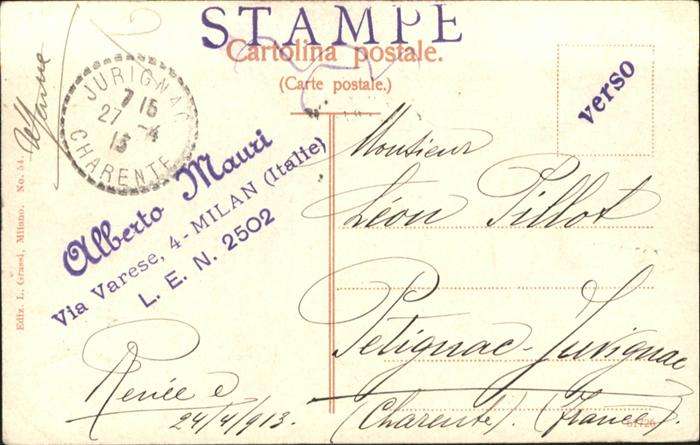 STAMPE
Cartolina postale.
(Carte postale.)
verso
JURIGNAC
7 15
27 - 4
13
CHARENTE
Alberto Mauri
Via Varese, 4 - MILAN (Italie)
L. E. N. 2502
Ediz. L. Grassi, Milano. No. 54.
Monsieur
Léon Pillot
Petignac-Jurignac
(Charente). (France).
Renée e
24/4/913.